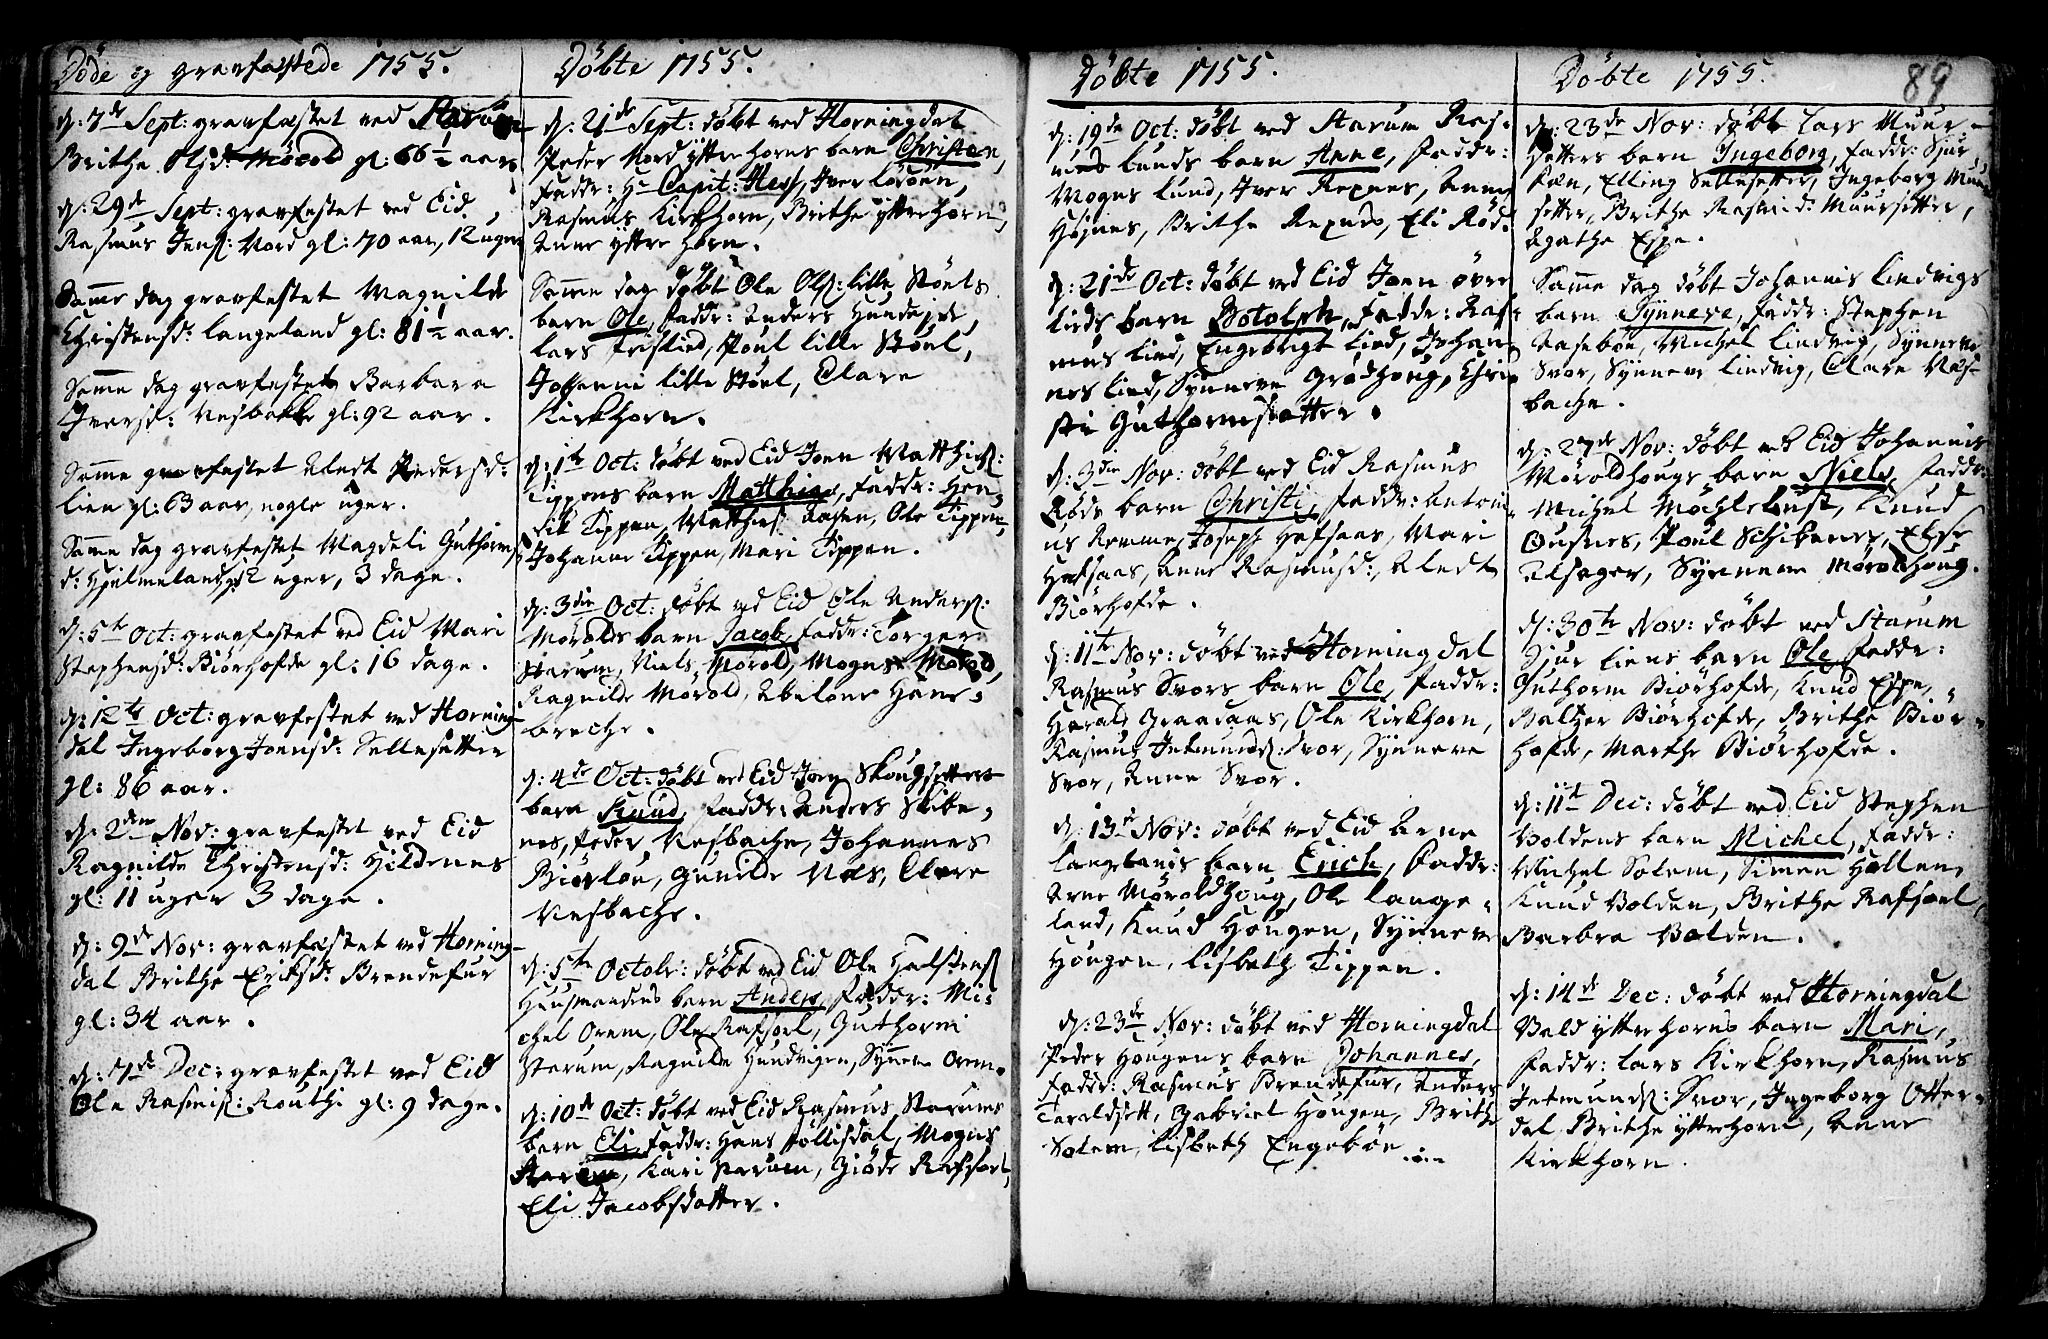 Döde og gravfæstede 1755.
d: 7de Sept: gravfæstet ved Starum
Brithe Olsd: Mórold gl: 66½ aar,
d: 29de Sept: gravfæstet ved Eid
Rasmus Jens: Nord gl: 70 aar, 12 uger
Samme dag gravfestet Magnilde
Christensd: Langeland gl: 81½ aar.
Samme dag gravfestet Barbara
Iversd: Nesbakke gl: 92 aar.
Samme gravfestet Aledt Pedersd:
Lien gl: 63 aar, nogle uger.
Samme dag gravfestet Magdeli Guthorms
d: Hjelmeland gl: 2 uger, 3 dage.
d: 5te Oct: gravfestet ved Eid Mari
Stephensd: Biörhofde gl: 16 dage.
d: 12te Oct: gravfestet ved Horning-
dal Ingeborg Joensd: Sellesetter
gl: 86 aar.
d: 2den Nov: gravfestet ved Eid
Ragnilde Christensd: Hildenes
gl: 11 uger 3 dage.
d: 9de Nov: gravfæstet ved Horning-
dal Brithe Eriksd: Brendefur
gl: 34 aar.
d: 7de Dec: gravfestet ved Eid
Ole Rasmis: Routhi gl: 9 dage.
Döbte 1755.
d: 21de Sept: döbt ved Horningdal
Peder Nord ytterhorns barn Christen,
Faddr: Hr Capit: Hess, Iver Lödöen,
Rasmus Kirkhorn, Brithe ytterhorn,
Anne ytterhorn.
Samme dag döbt Ole Ols: lille Stöels
barn Ole, Faddr: Anders Hundeide,
Lars Frislied, Poul lille Stöel,
Johanne lille Stöel, Clare
Kirkhorn.
d: 1te Oct: döbt ved Eid Joen Matthis:
Tippens barn Matthias, Faddr: Hen-
rik Tippen, Matthis: Aasen, Ole Tippen,
Johanne Tippen, Mari Tippen.
d: 3die Oct: döbt ved Eid Ole Anders:
Mórolds barn Jacob, Faddr: Torger
Starum, Niels Mórold, Mogns Mórold,
Ragnilde Mórold, Abelone Hans-
breche.
d: 4de Oct: döbt ved Eid Joen Skougsetters
barn Knud, Faddr: Anders Skibe-
nes, Peder Nesbache, Johannes
Biörlöu, Gunilde Nes, Clare
Nesbache.
d: 5te Octobr: döbt ved Eid Ole Halstens:
Huusmandens barn Anders, Faddr: Mi-
chel Orem, Ole Rafsoel, Guthorm
Starum, Ragnilde Hundvigen, Synneve Orem.
d: 10de Oct: döbt ved Eid Rasmus Starums
barn Eli, Faddr: Hans Follisdal, Mogns
Starum, Kari Starum, Giöde Rafsoel,
Eli Jacobsdotter.
Döbte 1755.
d: 19de Oct: döbt ved Starum Ras-
mus Lunds barn Anne, Faddr:
Mogns Lund, Iver Rexnes, Anne
Högnes, Brithe Rexnes, Eli Röd.
d: 21de Oct: döbt ved Eid Joen över
Lieds barn Botolph, Faddr: Ras-
mus Lied, Engebrigt Lied, Johan-
nes Lied, Synneve Grodhoug, Chri-
sti Guthormsdotter.
d: 3die Nov: döbt ved Eid Rasmus
Röds barn Christi, Faddr: Antoni-
us Remme, Joseph Hafsaas, Mari
Hafsaas, Anne Rasmusd:, Aledt
Biörhofde.
d: 11te Nov: döbt ved Horningdal
Rasmus Svors barn Ole, Faddr:
Harald Graadaas, Ole Kirkhorn,
Rasmus Jetmunds: Svor, Synneve
Svor, Anne Svor.
d: 13de Nov: döbt ved Eid Arne
Langelands barn Erich, Faddr:
Arne Móroldhoug, Ole Lange-
land, Knud Hougen, Synneve
Hougen, Lisbeth Tippen.
d: 23de Nov: döbt ved Horningdal
Peder Hougens barn Johannes,
Faddr: Rasmus Brendefur, Anders
Taraldsett, Gabriel Hougen, Brithe
Solem, Lisbeth Engeböe.
Döbte 1755. 89
d: 23de Nov: döbt Lars Muur-
setters barn Ingeborg, Faddr: Sjur
Elling Sellesetter, Ingeborg Muur
setter, Brithe Rasmisd: Muursetter,
Agathe Espe.
Samme dag döbt Johannis Lindvigs
barn Synneve, Faddr: Stephen
Aaseböe, Michel Lindvig, Synneve
Svor, Synneve Lindvig, Clare Nes-
bache.
d: 27de Nov: döbt ved Eid Johannis
Móroldhougs barn Niels, Faddr:
Michel Möchlebust, Knud
Ousnes, Poul Schibenes, Else
Alsager, Synneve Móroldhoug.
d: 30te Nov: döbt ved Starum
Sjur Liens barn Ole, Faddr:
Guthorm Biörhofde, Knud Espe,
Baltzer Biörhofde, Brithe Biör-
hofde, Marthe Biörhofde.
d: 11te Dec: döbt ved Eid Stephen
Voldens barn Michel, Faddr:
Michel Solem, Simen Hallen,
Knud Volden, Brithe Rafsoel,
Barbra Volden.
d: 14de Dec: döbt ved Horningdal
Bald ytterhorns barn Mari,
Faddr: Lars Kirkhorn, Rasmus
Jetmunds: Svor, Ingeborg Otter-
dal, Brithe ytterhorn, Anne
Kirkhorn.